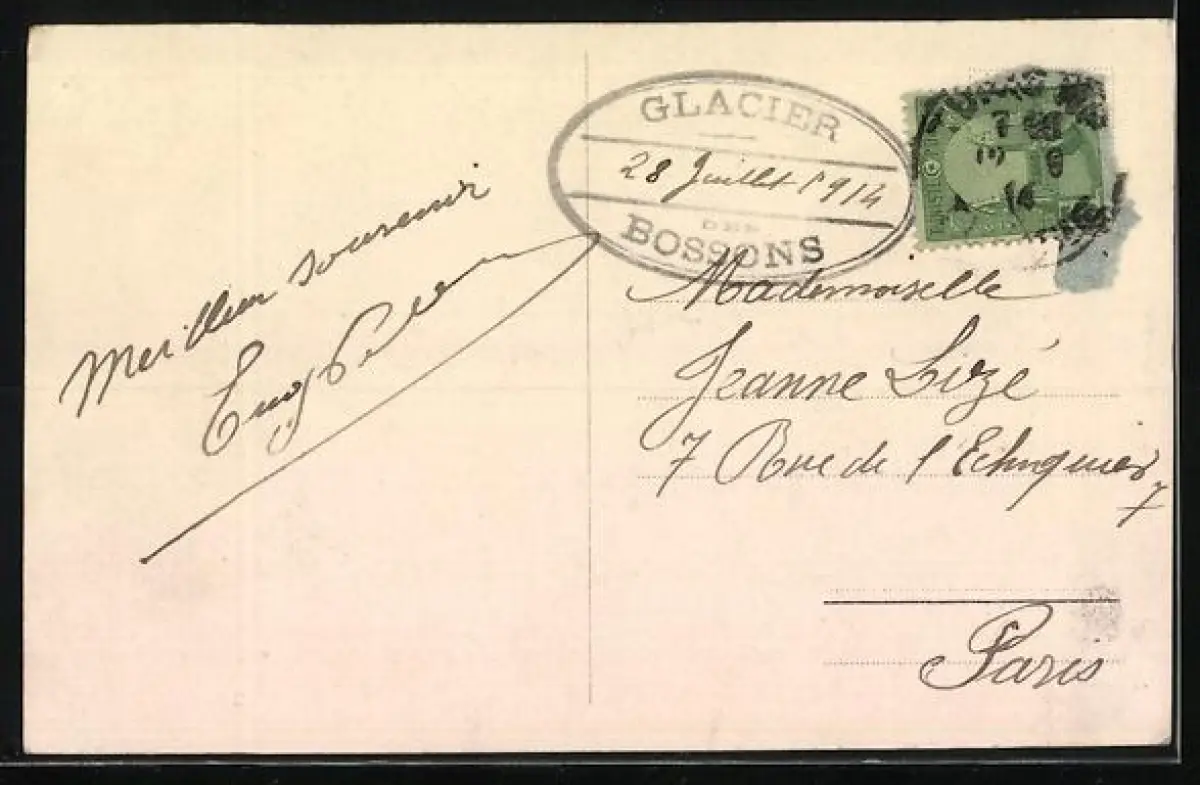 Meilleur souvenir
GLACIER
28 Juillet 1914
DES
BOSSONS
Mademoiselle
Jeanne Lizé
7 Rue de l'Echiquier
7
Paris